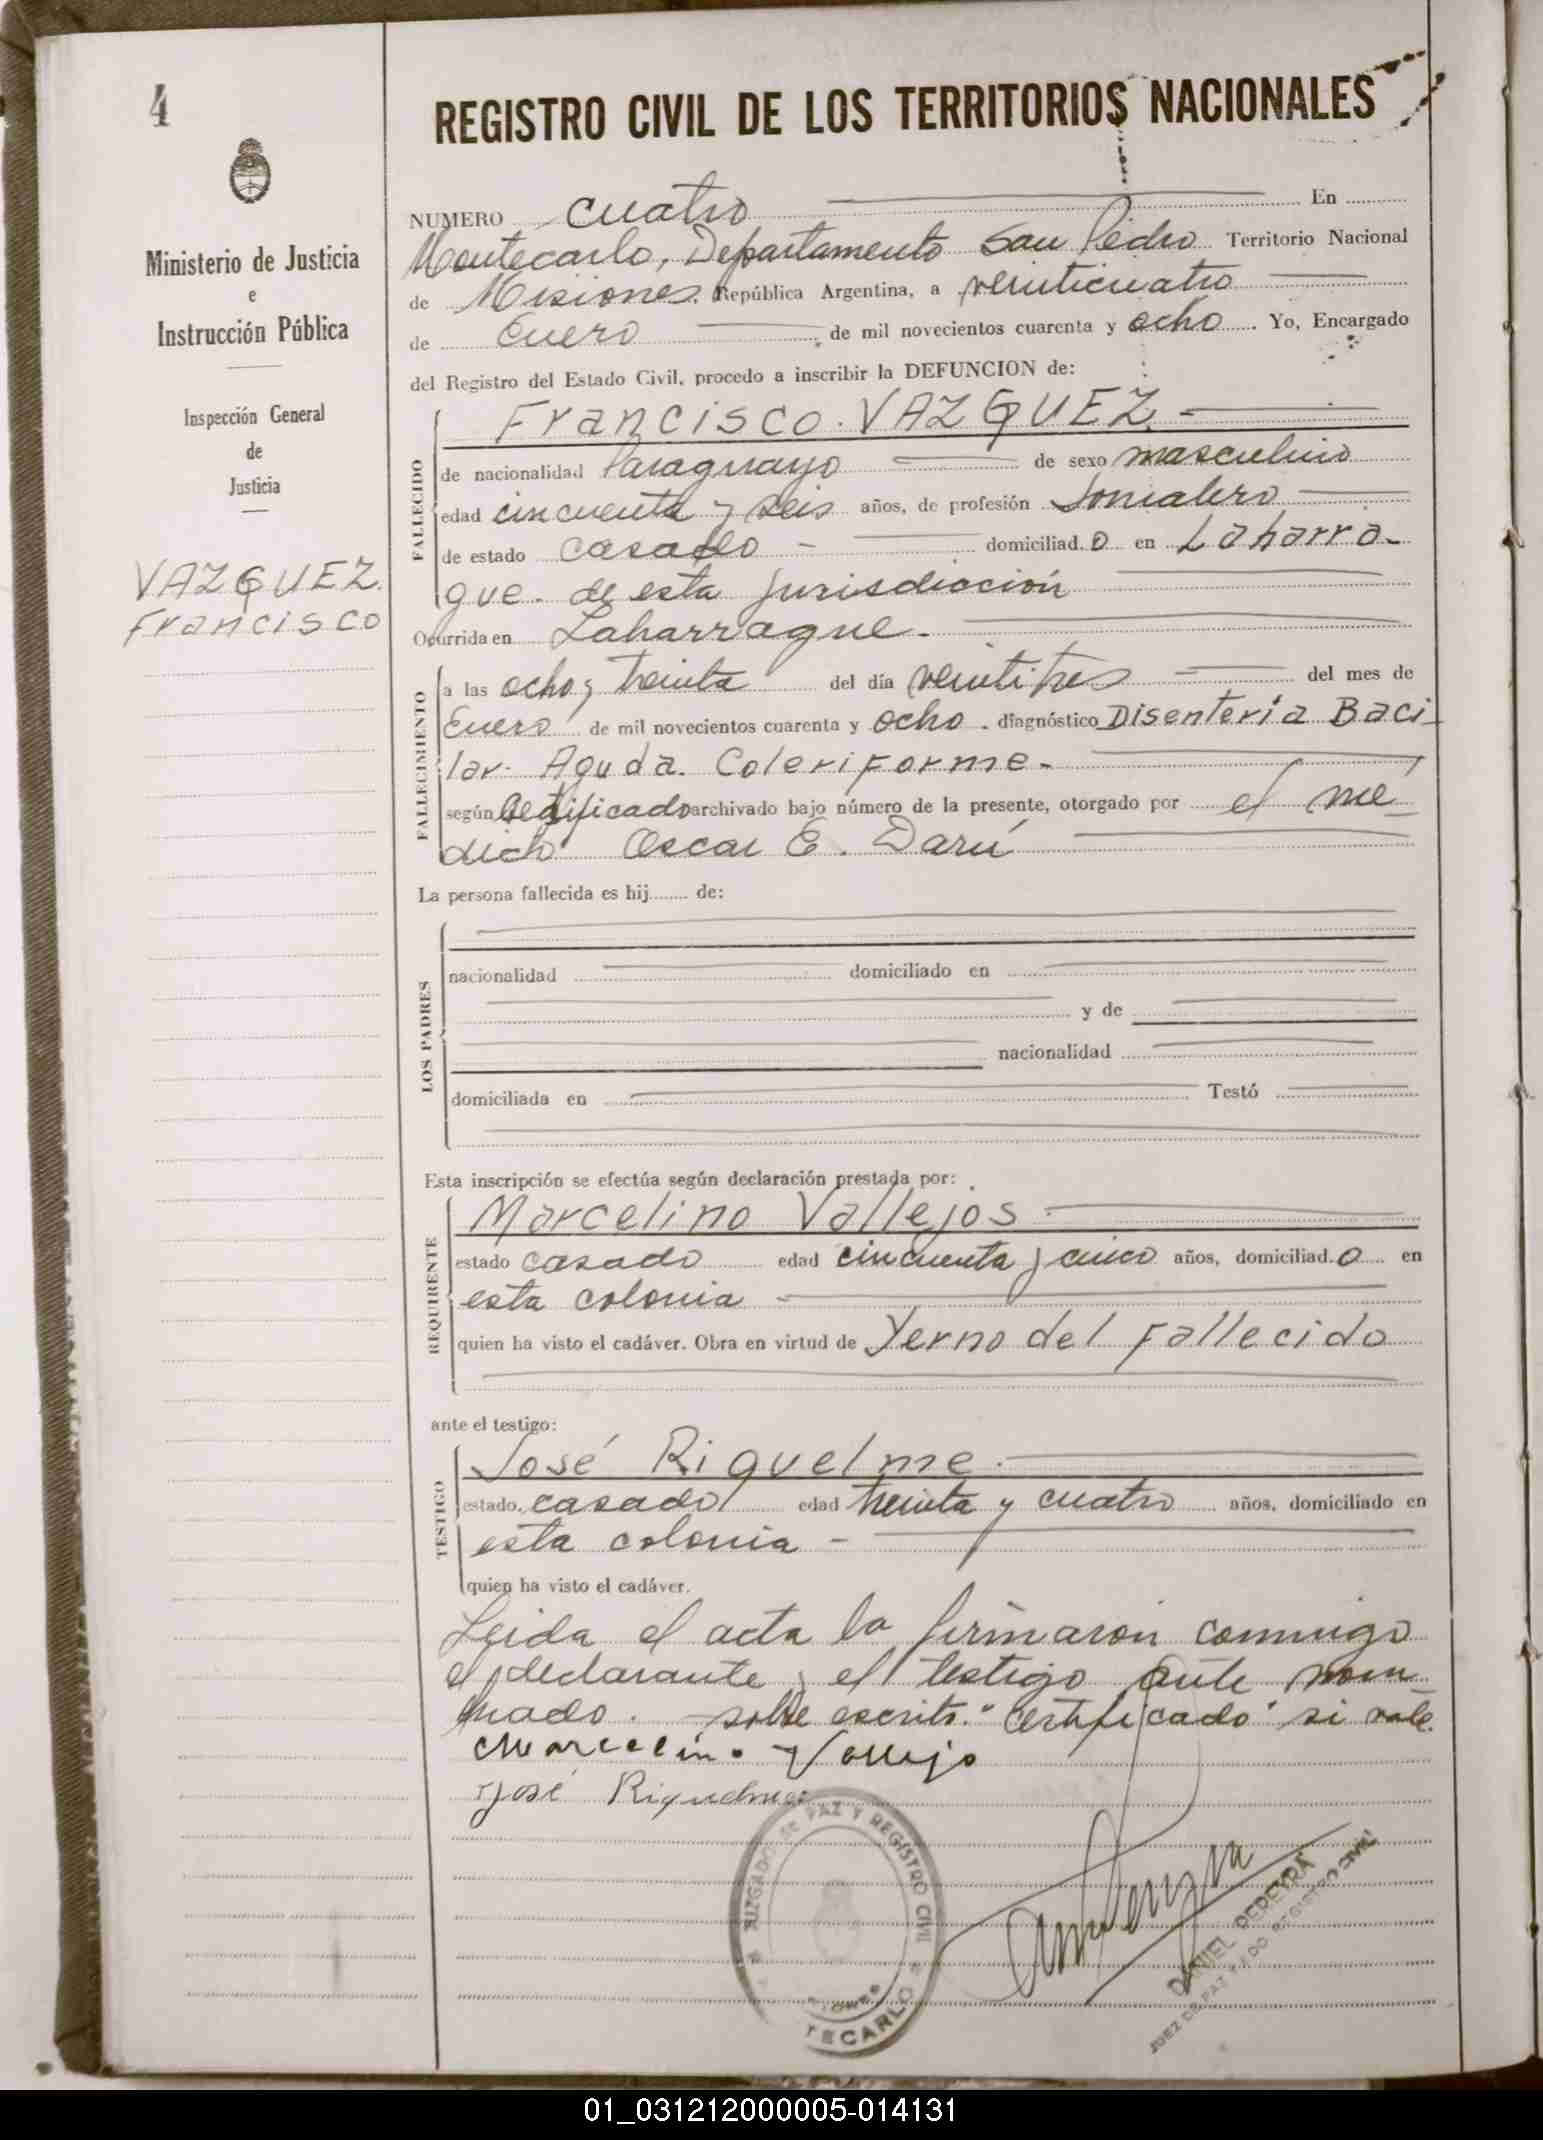 4
Ministerio de Justicia
e
Instrucción Pública
Inspección General
de
Justicia
VAZQUEZ.
Francisco
REGISTRO CIVIL DE LOS TERRITORIOS NACIONALES
NUMERO cuatro En
Montecarlo, Departamento San Pedro Territorio Nacional
de Misiones. República Argentina, a veinticuatro
de Enero de mil novecientos cuarenta y ocho Yo, Encargado
del Registro del Estado Civil, procedo a inscribir la DEFUNCION de:
FALLECIDO
Francisco. VAZQUEZ.
de nacionalidad Paraguayo de sexo masculino
edad cincuenta y seis años, de profesión
de estado casado - domiciliad.o en Laharra-
gue. de esta jurisdicción
Ocurrida en Laharrague.
FALLECIMIENTO
a las ocho y treinta del día veintitres - del mes de
Enero de mil novecientos cuarenta y ocho. diagnóstico Disenteria Baci-
lar. Aguda. Coleriforme.
según Certificado archivado bajo número de la presente, otorgado por el mé-
dico Oscar E. Darú
La persona fallecida es hij........ de:
LOS PADRES
nacionalidad domiciliado en
y de
nacionalidad
domiciliada en Testó
Esta inscripción se efectúa según declaración prestada por:
REQUIRENTE
Marcelino Vallejos
estado casado edad cincuenta y cinco años, domiciliad.o en
esta colonia -
quien ha visto el cadáver. Obra en virtud de Yerno del fallecido
ante el testigo:
TESTIGO
José Riquelme.
estado. casado edad treinta y cuatro años, domiciliado en
esta colonia -
quien ha visto el cadáver.
Leida el acta la firmaron conmigo
el declarante y el testigo ante nom-
brado. - sobre escrito. "Certificado" si vale.
Marcelino Vallejo
José Riquelme
JUZGADO DE PAZ Y REGISTRO CIVIL
TECARLO
DANIEL PEREYRA
JUEZ DE PAZ REGISTRO CIVIL
01_031212000005-014131